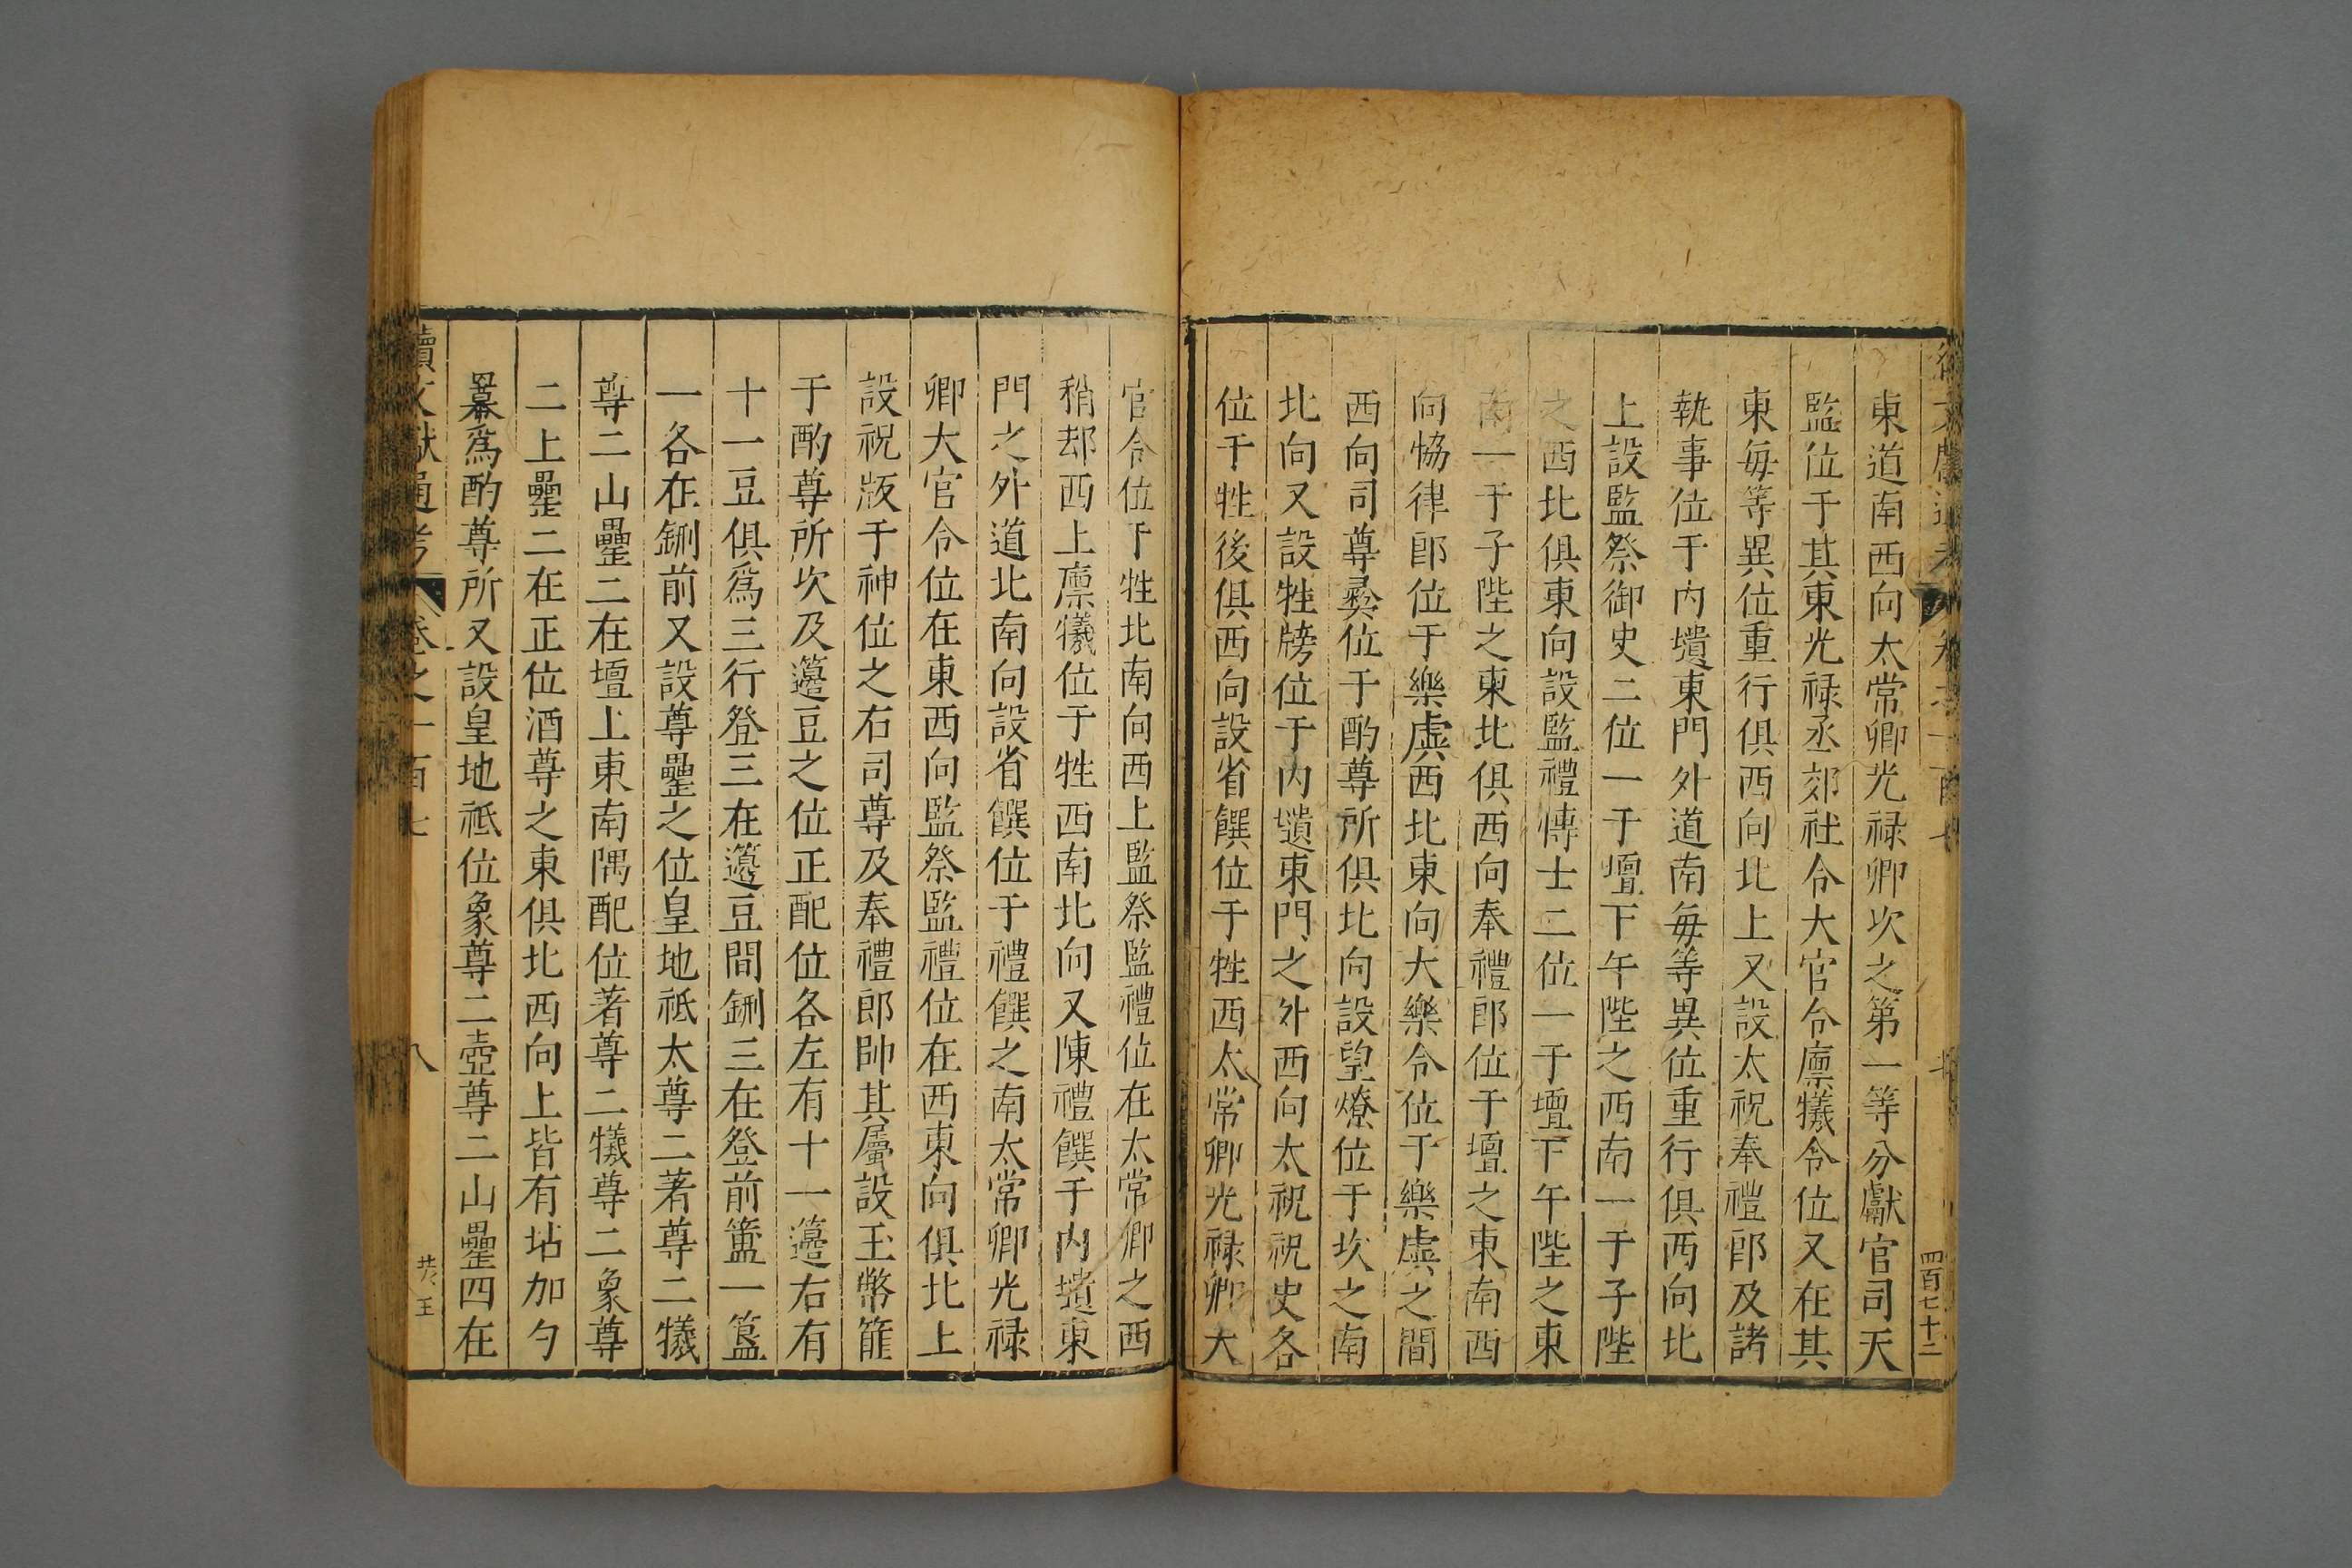 東道南西向太常卿光禄卿次之第一等分獻官司天
監位于其東光禄丞郊社令大官令廩犧令位又在其
東每等異位重行俱西向北上又設太祝奉禮郎及諸
執事位于内壝東門外道南每等異位重行俱西向北
上設監祭御史二位一于壇下午陛之西南一于子陛
之西北俱東向設監禮博士二位一于壇下午陛之東
南一于子陛之東北俱西向奉禮郎位于壇之東南西
向恊律郎位于樂虡西北東向大樂令位于樂虡之間
西向司尊彝位于酌尊所俱北向設望燎位于坎之南
北向又設牲牓位于内壝東門之外西向太祝祝史各
位于牲後俱西向設省饌位于牲西太常卿光禄卿大
四百七十二
官令位于牲北南向西上監祭監禮位在太常卿之西
稍却西上廩犧位于牲西南北向又陳禮饌于内壝東
門之外道北南向設省饌位于禮饌之南太常卿光禄
卿大官令位在東西向監祭監禮位在西東向俱北上
設祝版于神位之右司尊及奉禮郎帥其屬設玉幣篚
于酌尊所次及籩豆之位正配位各左有十一籩右有
十一豆俱爲三行登三在籩豆間鉶三在登前簠一簋
一各在鉶前又設尊罍之位皇地祗太尊二著尊二犧
尊二山罍二在壇上東南隅配位著尊二犧尊二象尊
二上罍二在正位酒尊之東俱北西向上皆有坫加勺
冪爲酌尊所又設皇地祗位象尊二壺尊二山罍四在
續文獻通考 卷之一百七 八